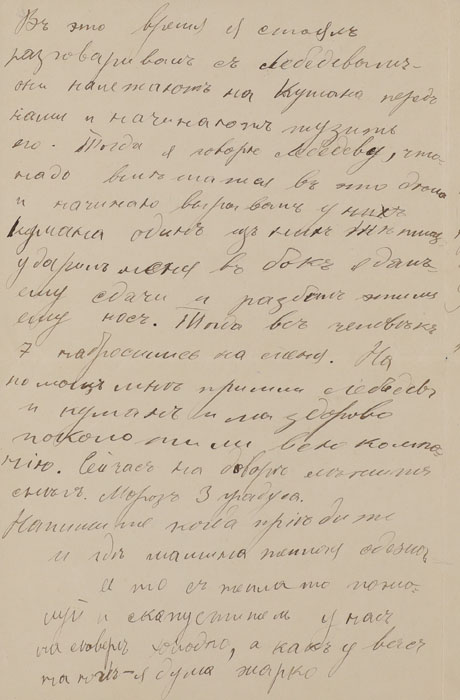 Въ это время я стоялъ
разговаривалъ съ Лебедевымъ-
они налезаютъ на Кумана передъ
нами и начинаютъ тузить
его. Тогда я говорю Лебедеву, что
надо вмешатся въ это дело
и начинаю вырывать у нихъ
кумана одинъ изъ нихъ
ударилъ меня въ бокъ я далъ
ему сдачи и разбилъ этимъ
ему носъ. Тогда все человекъ
7 набросились на меня. На
помощь мне пришли Лебедевъ
и куманъ и мы здорово
поколотили всю компа-
нію. Сейчасъ на дворе
снегъ. Морозъ 3 градуса.
Напишите когда пріедите
и где мамина теплая одежда
а то съ тепла то пожа-
луй и скапустител у насъ
на северъ холодно, а какъ у васъ
на юге-я дума жарко